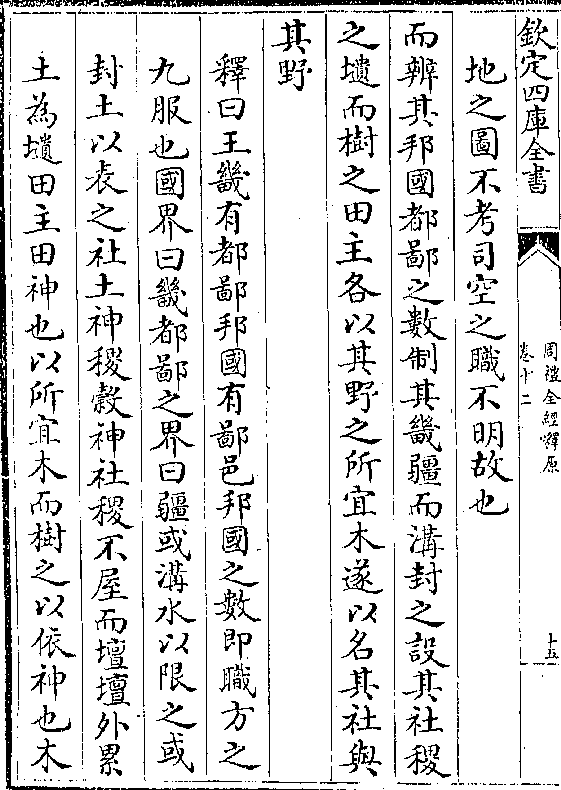 欽定四庫全書
周禮全經釋原
卷十二
十五
地之圖不考司空之職不明故也
而辨其邦國都鄙之數制其畿疆而溝封之設其社稷
之壝而樹之田主各以其野之所宜木遂以名其社與
其野
釋曰王畿有都鄙邦國有鄙邑邦國之數即職方之
九服也國界曰畿都鄙之界曰疆或溝水以限之或
封土以表之社土神稷榖神社稷不屋而壇壇外累
土為壝田主田神也以所宜木而樹之以依神也木